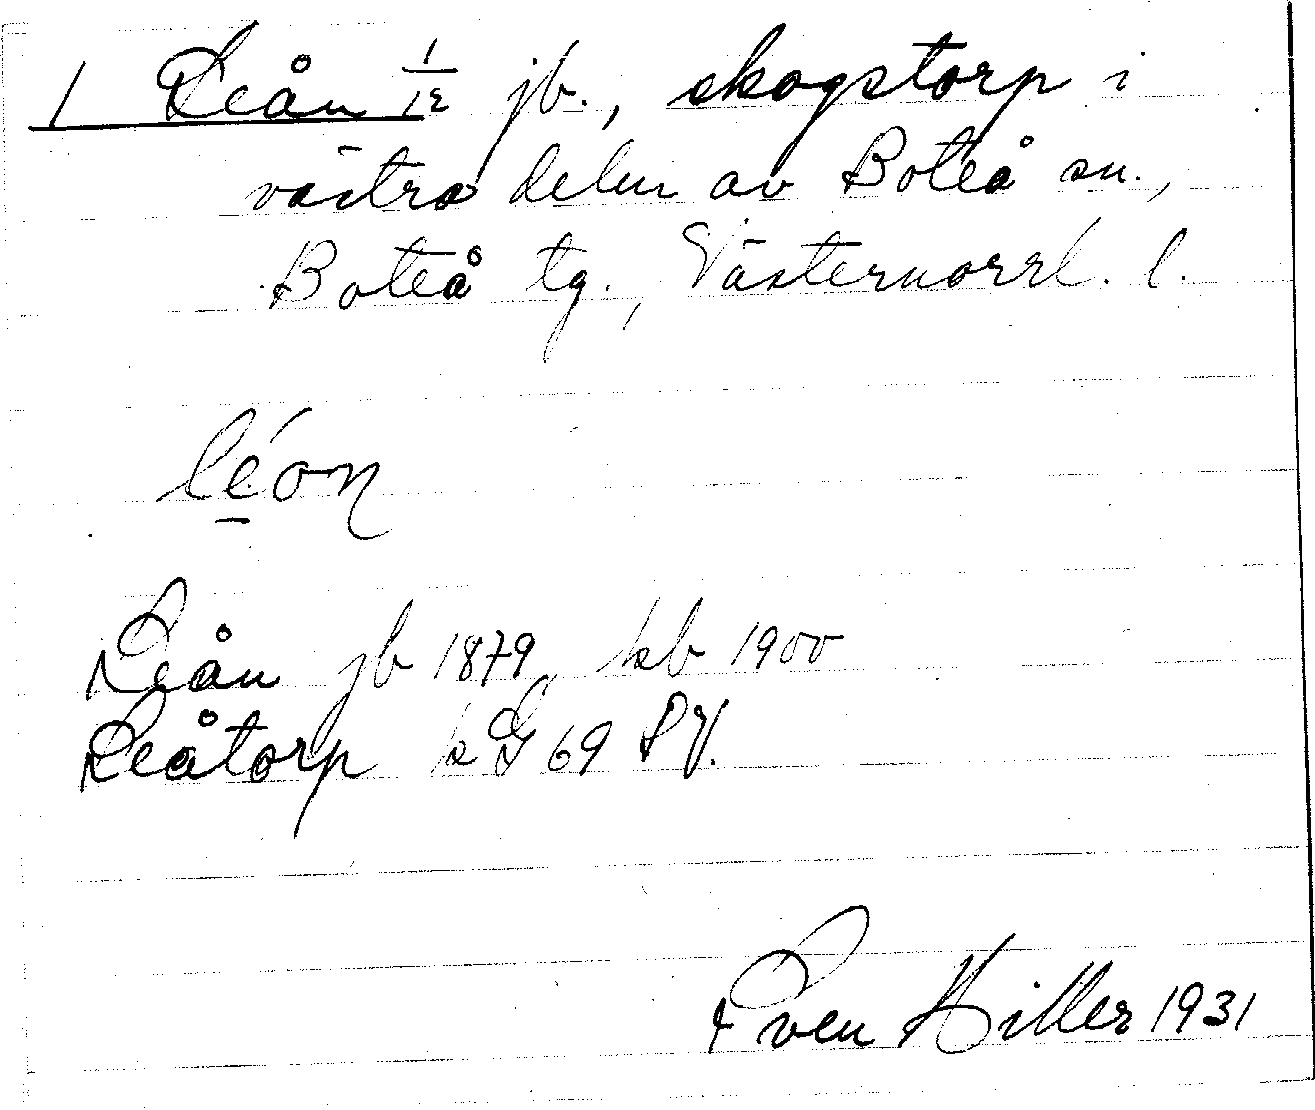 1 Leån 1/12 jb., skogstorp i
västra delen av Boteå sn.,
Boteå tg., Västernorrl. l.
léon
Leån jb 1879, kb 1900
Leåtorp k G 69
Sven Hiller 1931